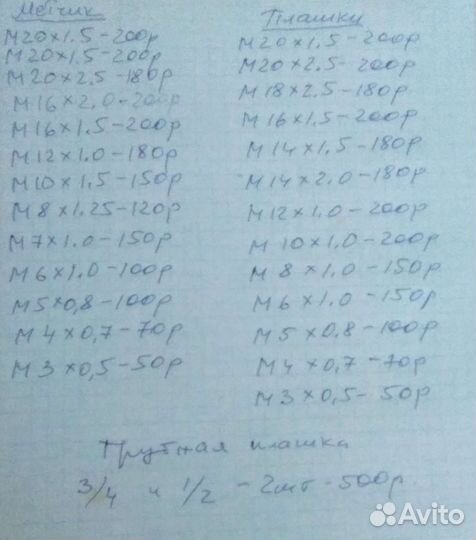 Метчик
М20х1.5-200р
М20х1.5-200р
М20х2.5-180р
М16х2.0-200р
М16х1.5-200р
М12х1.0-180р
М10х1.5-150р
М8х1.25-120р
М7х1.0-150р
М6х1.0-100р
М5х0,8-100р
М4х0,7-70р
М3х0,5-50р
Плашки
М20х1.5-200р
М20х2.5-200р
М18х2.5-180р
М16х1.5-200р
М14х1.5-180р
М14х2.0-180р
М12х1.0-200р
М10х1.0-200р
М8х1.0-150р
М6х1.0-150р
М5х0.8-100р
М4х0,7-70р
М3х0,5-50р
Трубная плашка
3/4 и 1/2 - 2шт - 500р.
Avito